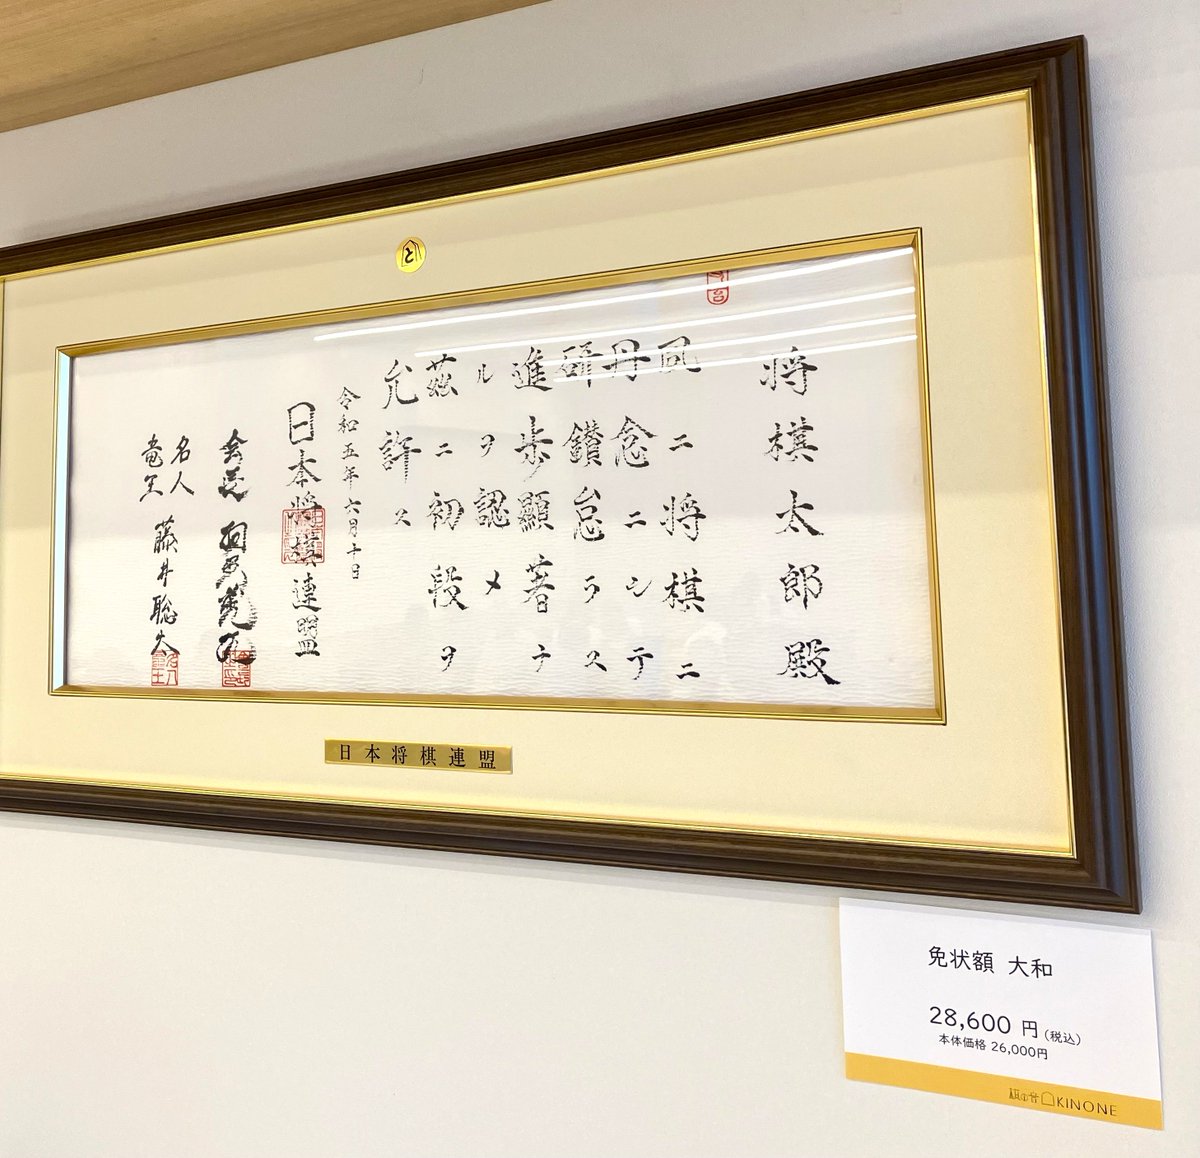 将棋太郎殿
夙ニ将棋ニ
丹念ニシテ
研鑽怠ラス
進歩顯著ナ
ルヲ認メ
茲ニ初段ヲ
允許ス
令和五年六月十日
日本将棋連盟
会長 羽生善治
名人
竜王 藤井聡太
日本将棋連盟
免状額 大和
28,600 円(税込)
本体価格 26,000円
棋の音 KINONE